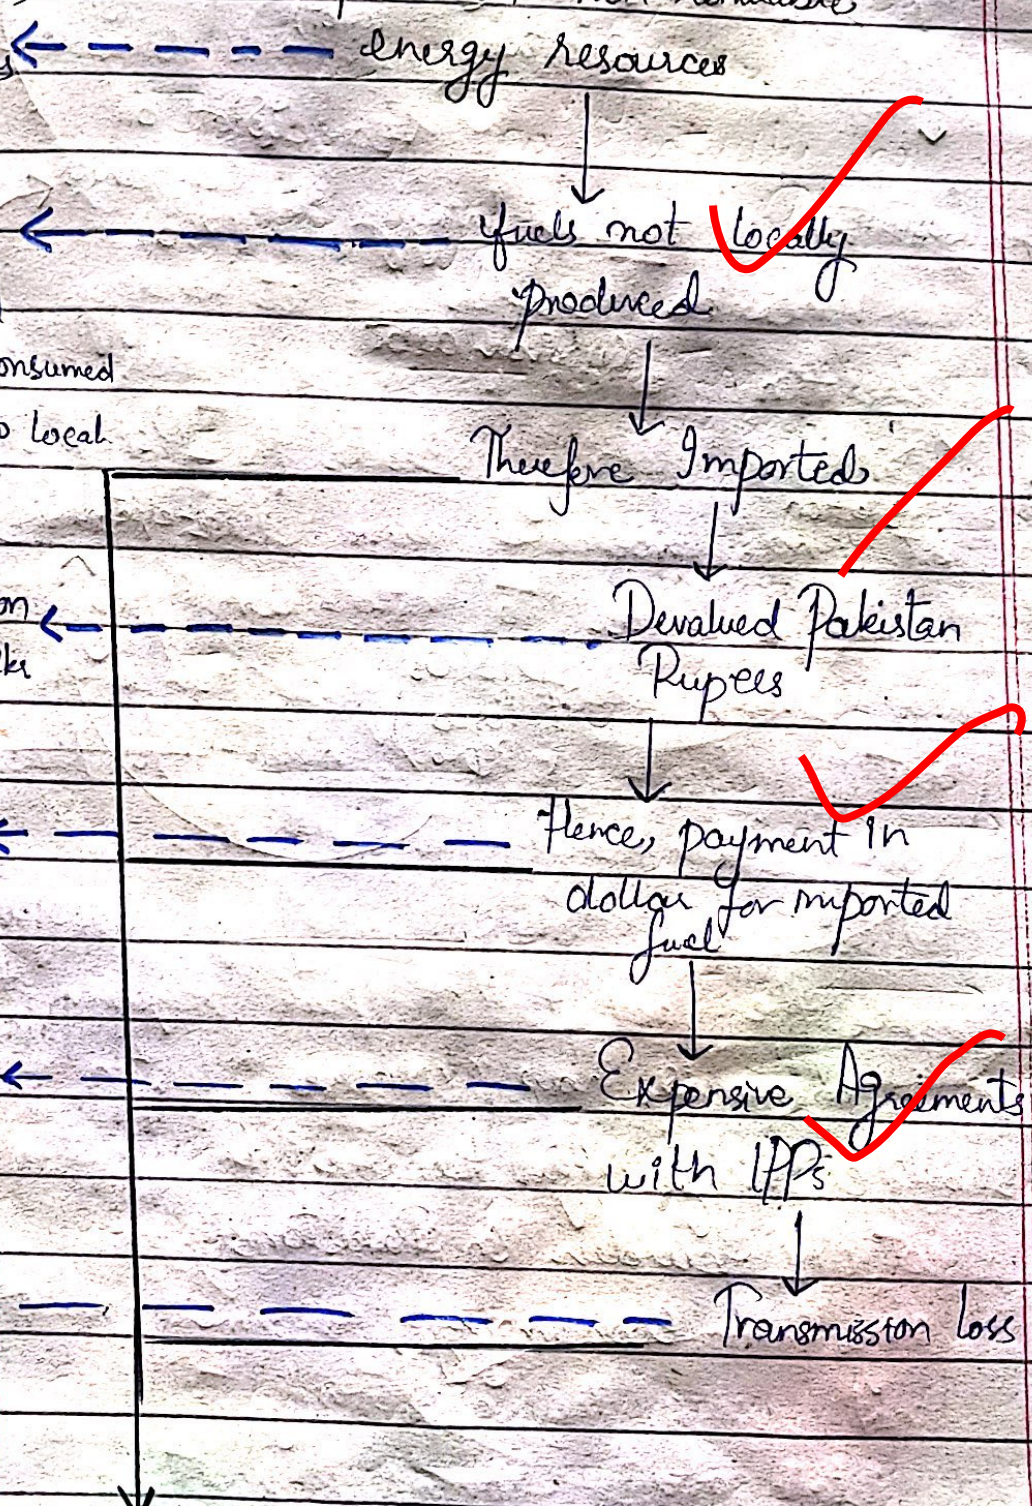 energy resources
fuels not locally
produced
onsumed
o local
Therefore Imported
on
Devalued Pakistan
Rupees
Hence, payment in
dollar for imported
fuel
Expensive Agreements
with IPPs
Transmission loss